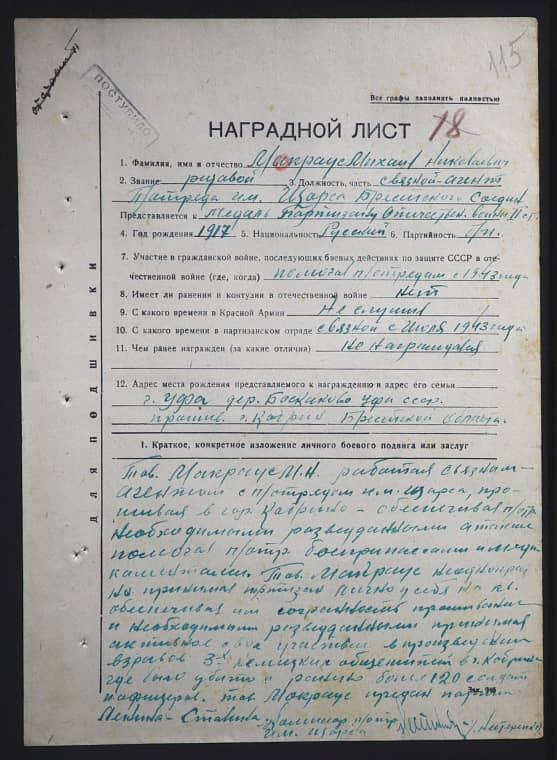 115
ПОСТУПИЛО
Все графы заполнять полностью
НАГРАДНОЙ ЛИСТ 18
1. Фамилия, имя и отчество Мокраус Михаил Николаевич
2. Звание рядовой 3. Должность, часть связной-агент
отряда им. Щорса Брестского Соедин
Представляется к медаль Партизану Отечествен. войны II ст.
4. Год рождения 1917 5. Национальность Русский 6. Партийность б/п.
7. Участие в гражданской войне, последующих боевых действиях по защите СССР в оте-
чественной войне (где, когда) п/отрядам с 1943 года
8. Имеет ли ранения и контузии в отечественной войне Нет
9. С какого времени в Красной Армии Не служил
10. С какого времени в партизанском отряде связной с Июля 1943 года
11. Чем ранее награжден (за какие отличия) Не Награждался
12. Адрес места рождения представляемого к награждению и адрес его семьи
г. Уфа дер. ССР.
г. Кобрин Брестской области.
1. Краткое, конкретное изложение личного боевого подвига или заслуг
Тов. Мокраус М.Н. работая связным-
агентом с п/отрядом им. Щорса, про-
живая в гор. Кобрине - обеспечивал п/отр
необходимыми разведданными а также
помогал п/отр боеприпасами и меди-
каментами. Тов. Мокраус неоднократ
но принимал партизан лично у себя на кв.
обеспечивая им сохранность проживания
и необходимыми разведданными принимал
активное свое участие в произведении
взрывов 3х немецких общежитий в г. Кобрине
где было убито и ранено более 120 солдат
и офицеров. тов. Мокраус предан партии
Ленина-Сталина. Комиссар п/отр
Им. Щорса
ДЛЯ ПОДШИВКИ